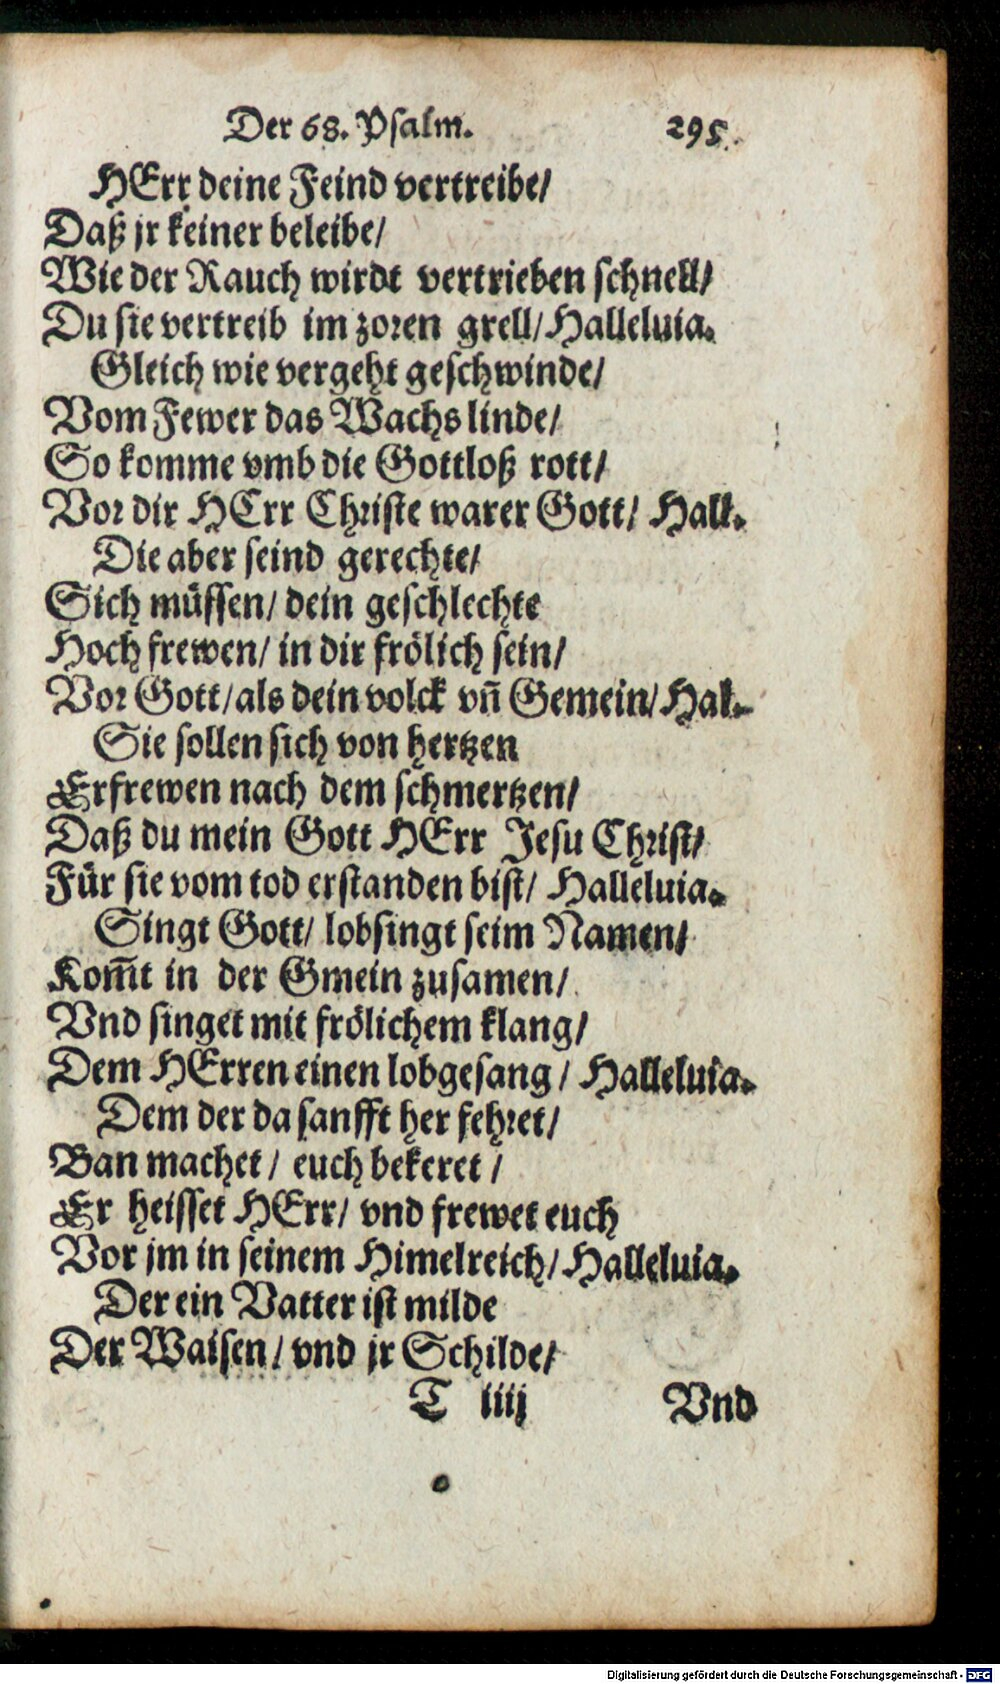 Der 68. Psalm. 295.
HErr deine Feind vertreibe/
Daß jr keiner beleibe/
Wie der Rauch wirdt vertrieben schnell/
Du sie vertreib im zoren grell/ Halleluia.
Gleich wie vergeht geschwinde/
Vom Fewer das Wachs linde/
So komme vmb die Gottloß rott/
Vor dir HErr Christe warer Gott/ Hall.
Die aber seind gerechte/
Sich müssen/ dein geschlechte
Hoch frewen/ in dir frölich sein/
Vor Gott/ als dein volck vñ Gemein/ Hal.
Sie sollen sich von hertzen
Erfrewen nach dem schmertzen/
Daß du mein Gott HErr Jesu Christ/
Für sie vom tod erstanden bist/ Halleluia.
Singt Gott/ lobsingt seim Namen/
Kom̃t in der Gmein zusamen/
Vnd singet mit frölichem klang/
Dem HErren einen lobgesang/ Halleluia.
Dem der da sanfft her fehret/
Ban machet/ euch bekeret/
Er heisset HErr/ vnd frewet euch
Vor jm in seinem Himelreich/ Halleluia.
Der ein Vatter ist milde
Der Waisen/ vnd jr Schilde/
T iiij Vnd
Digitalisierung gefördert durch die Deutsche Forschungsgemeinschaft - DFG